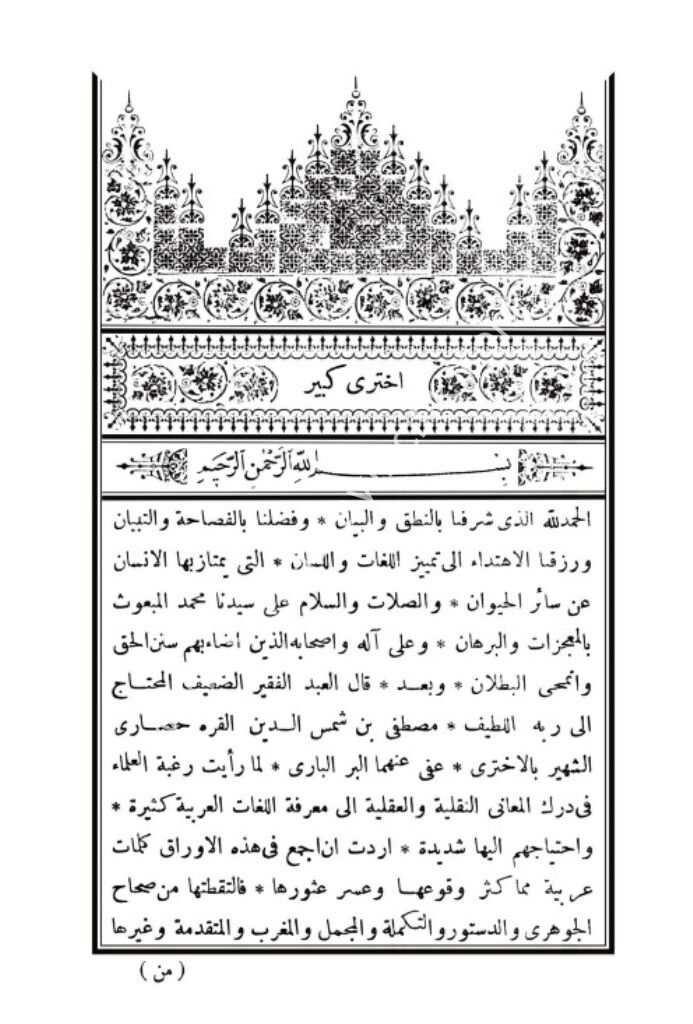 اخترى كبير
بسم الله الرحمن الرحيم
الحمدلله الذى شرفنا بالنطق والبيان * وفضلنا بالفصاحة والتبيان
ورزقنا الاهتداء الى تمييز اللغات واللسان * التى يمتازبها الانسان
عن سائر الحيوان * والصلات والسلام على سيدنا محمد المبعوث
بالمعجزات والبرهان * وعلى آله واصحابه الذين اضاءبهم سنن الحق
وانمحى البطلان * وبعد * قال العبد الفقير الضعيف المحتاج
الى ربه اللطيف * مصطفى بن شمس الدين القره حصارى
الشهير بالاخترى * عفى عنهما البر البارى * لما رأيت رغبة العلماء
فى درك المعانى النقلية والعقلية الى معرفة اللغات العربية كثيرة *
واحتياجهم اليها شديدة * اردت ان اجمع فى هذه الاوراق كلمات
عربية مما كثر وقوعها وعسر عثورها * فالتقطتها من صحاح
الجوهرى والدستور والتكملة والمجمل والمغرب والمتقدمة وغيرها
( من )